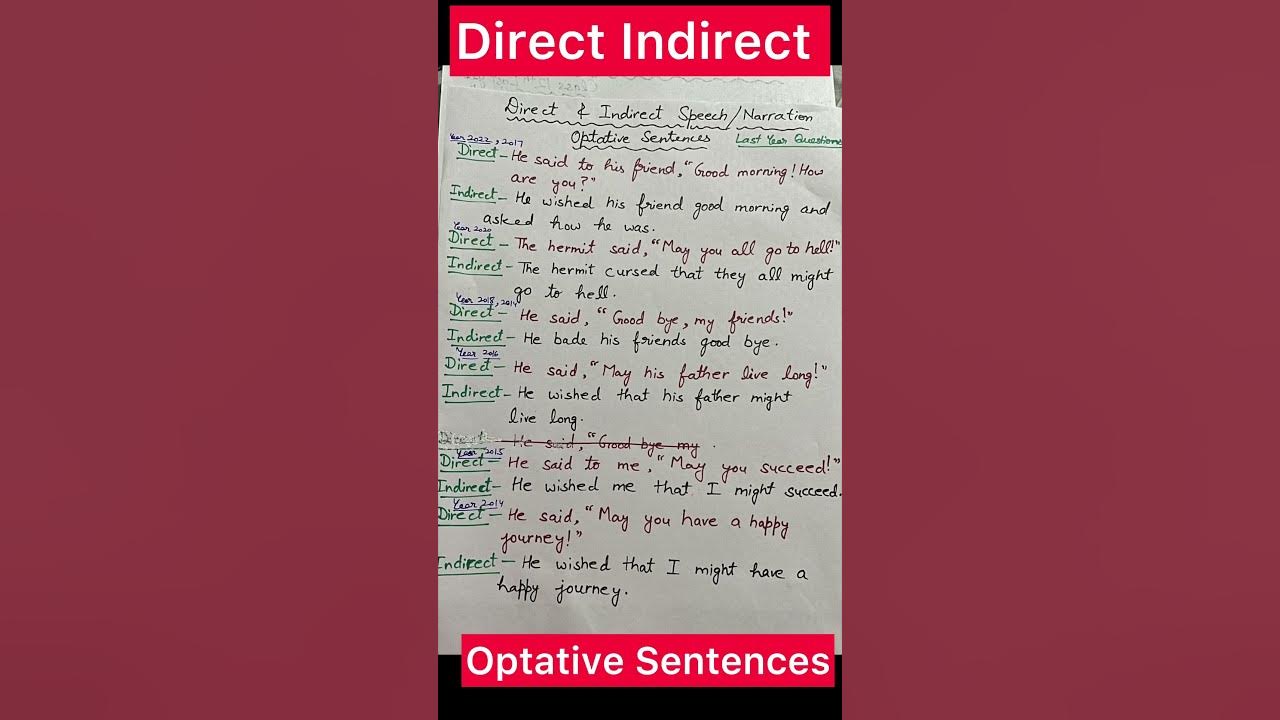 Direct Indirect
Direct & Indirect Speech/Narration
Optative Sentences
Last Year Questions
Year 2022, 2017
Direct – He said to his friend, "Good morning! How
are you?"
Indirect – He wished his friend good morning and
asked how he was.
Year 2020
Direct – The hermit said, "May you all go to hell!"
Indirect – The hermit cursed that they all might
go to hell.
Year 2018, 2014
Direct – He said, "Good bye, my friends!"
Indirect – He bade his friends good bye.
Year 2016
Direct – He said, "May his father live long!"
Indirect – He wished that his father might
live long.
Direct – He said, "Good bye my .
Year, 2015
Direct – He said to me, "May you succeed!"
Indirect – He wished me that I might succeed.
Year 2014
Direct – He said, "May you have a happy
journey!"
Indirect – He wished that I might have a
happy journey.
Optative Sentences